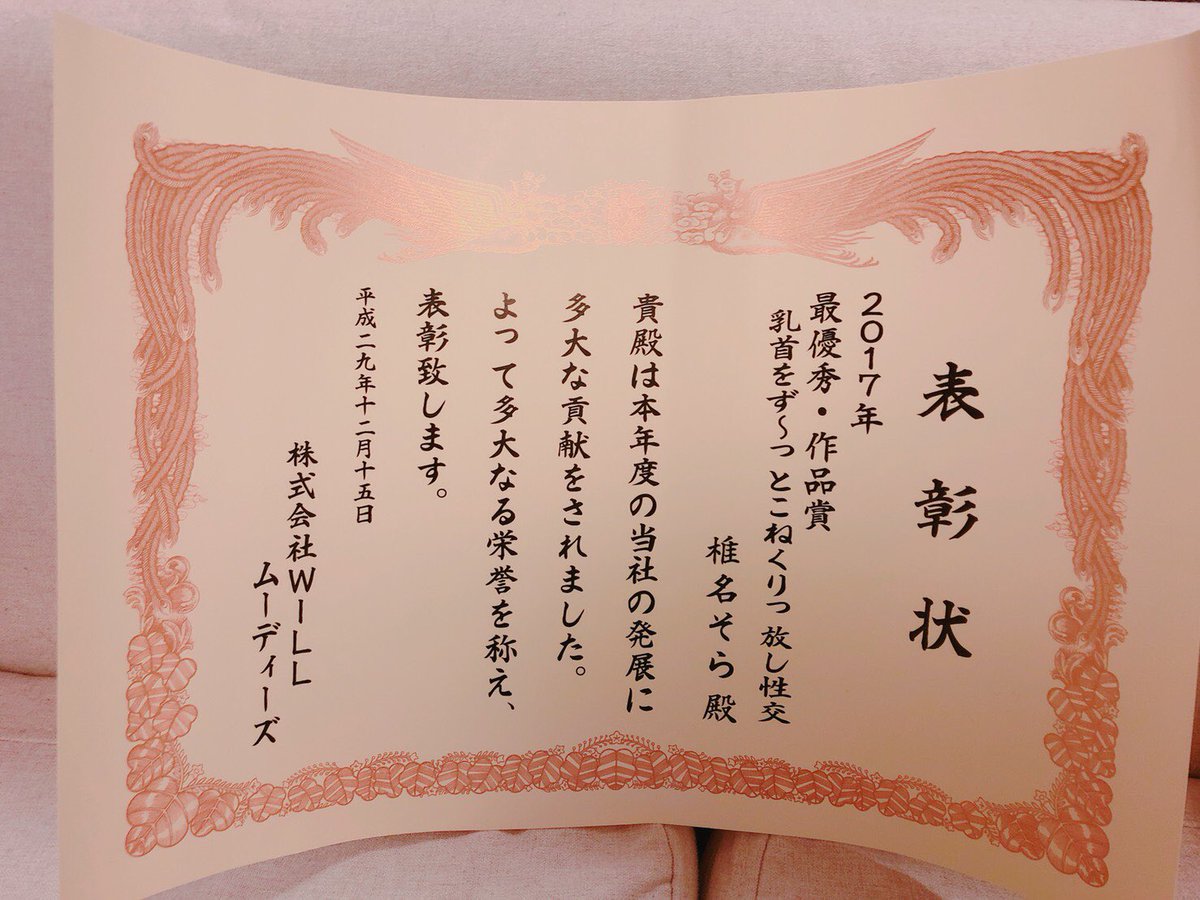 表彰状
2017年
最優秀・作品賞
乳首をず～っとこねくりっ放し性交
椎名そら 殿
貴殿は本年度の当社の発展に
多大な貢献をされました。
よって多大なる栄誉を称え、
表彰致します。
平成二九年十二月十五日
株式会社WILL
ムーディーズ